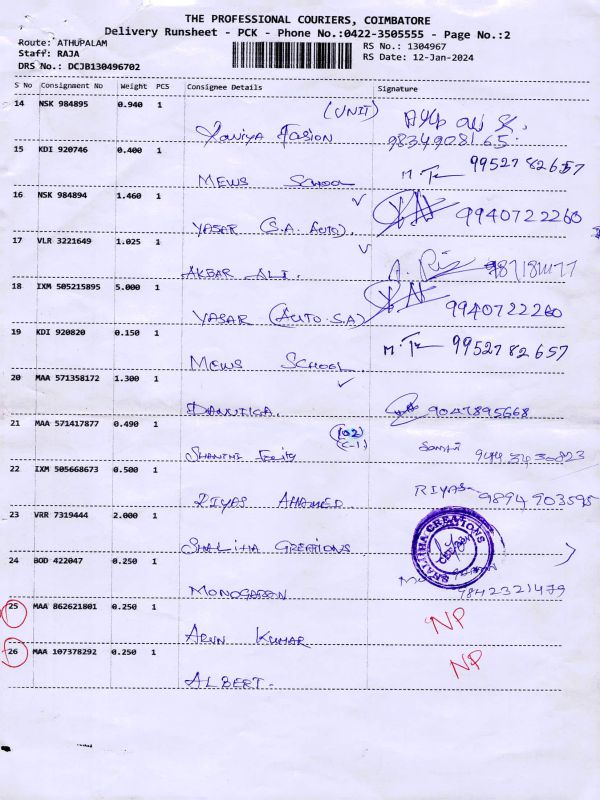 THE PROFESSIONAL COURIERS, COIMBATORE
Delivery Runsheet - PCK - Phone No.:0422-3505555 - Page No.:2
Route: ATHUPALAM
RS No.: 1304967
Staff: RAJA
RS Date: 12-Jan-2024
DRS No.: DCJB130496702
S No Consignment No Weight PCS Consignee Details Signature
14 NSK 984895 0.940 1
(UNIT)
9834908165
15 KDI 920746 0.400 1
MEWS SCHOOL 9952782657
16 NSK 984894 1.460 1
YASAR (S.A. AUTO). 9940722260
17 VLR 3221649 1.025 1
AKBAR ALI.
18 IXM 505215895 5.000 1
YASAR (AUTO.SA) 9940722260
19 KDI 920820 0.150 1
MEWS SCHOOL 9952782657
20 MAA 571358172 1.300 1
9047895668
21 MAA 571417877 0.490 1
(C-1)
SHANTHI
22 IXM 505668673 0.500 1
RIYAS AHAMED RIYAS 9894903595
23 VRR 7319444 2.000 1
SHALIHA CREATIONS
SHALIHA CREATIONS
24 BOD 422047 0.250 1
9842321479
25 MAA 862621801 0.250 1
ARUN KUMAR NP
26 MAA 107378292 0.250 1
ALBERT. NP